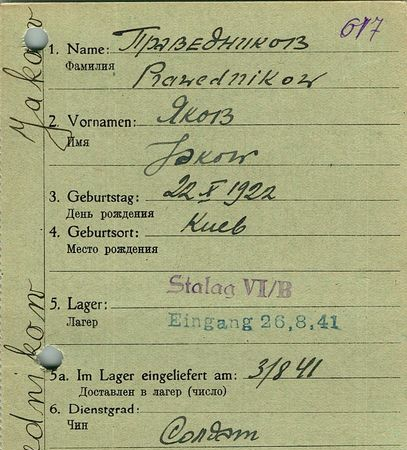 617
1. Name: Праведников
Фамилия
Prawednikow
2. Vornamen: Яков
Имя
Jakow
3. Geburtstag: 22 X 1922
День рождения
4. Geburtsort: Киев
Место рождения
Stalag VI/B
5. Lager:
Лагер
Eingang 26.8.41
5a. Im Lager eingeliefert am: 3/8 41
Доставлен в лагер (число)
6. Dienstgrad:
Чин
Солдат
Jakow
ednikow